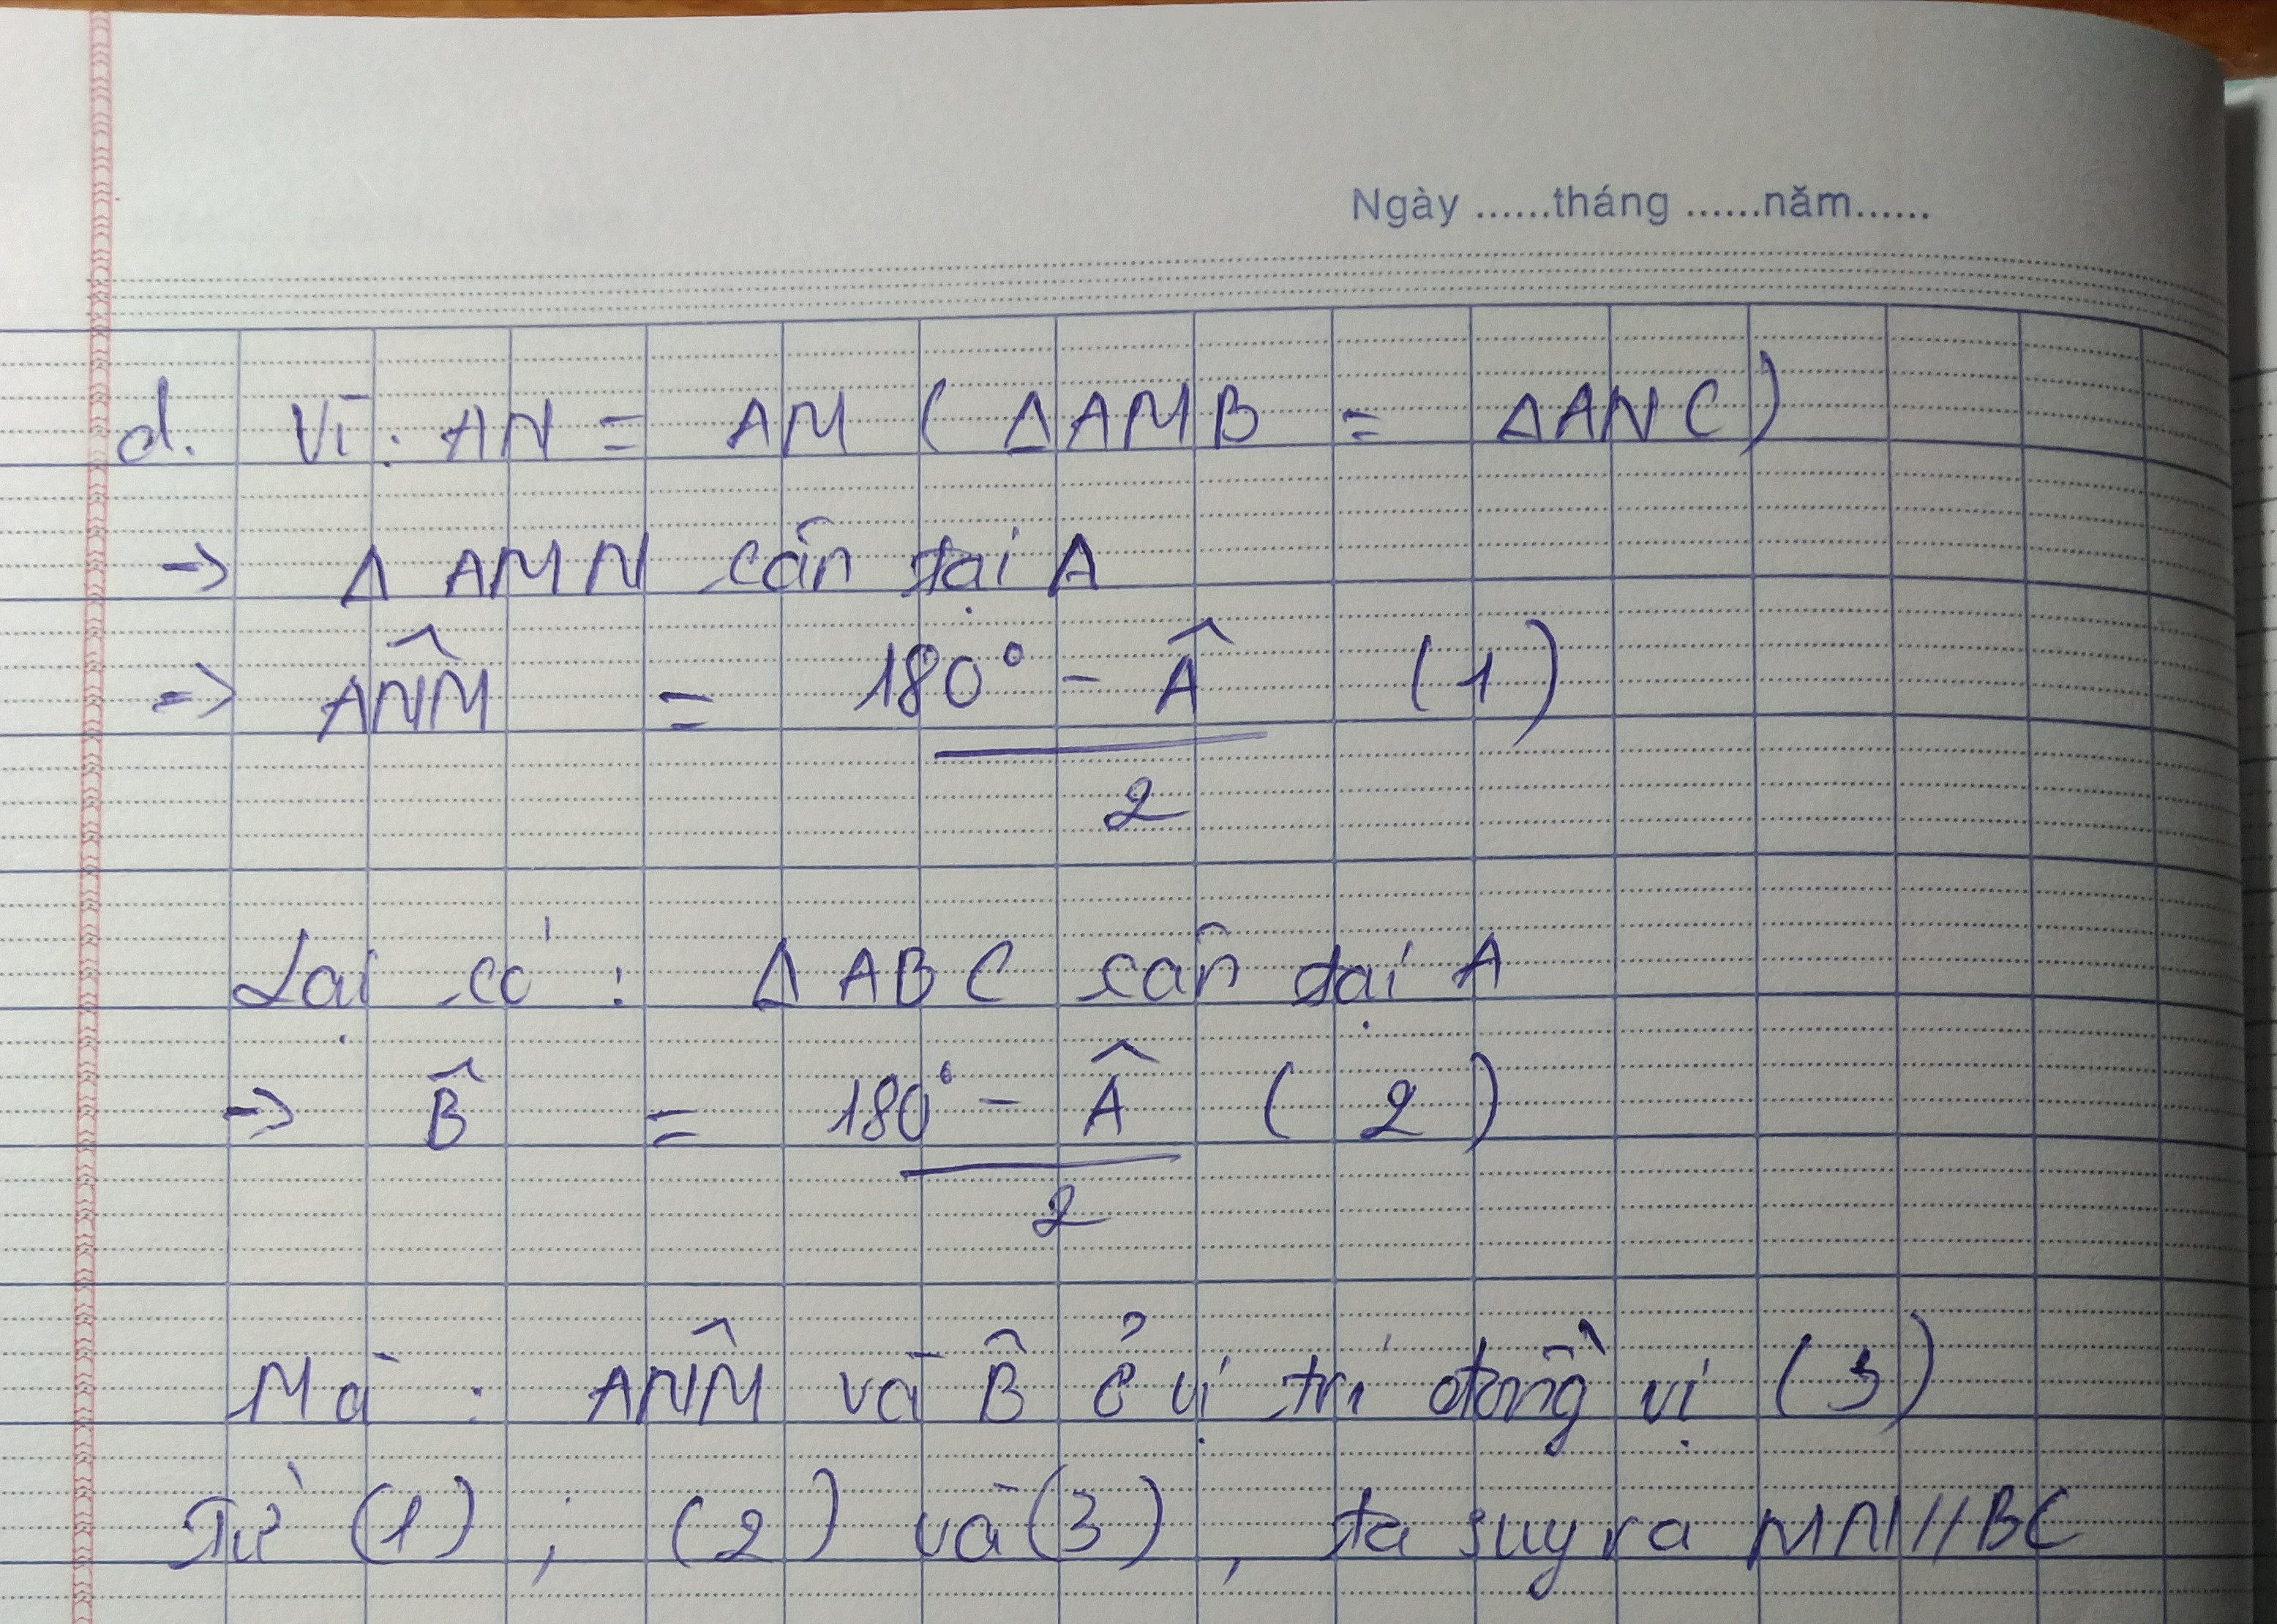 Ngày ......tháng ......năm......
d. Vì: AN = AM ( ΔAMB = ΔANC)
→ Δ AMN cân tại A
=> ANM̂ = 180° - Â (1)
2
Lại có : Δ ABC cân tại A
=> B̂ = 180° - Â ( 2 )
2
Mà : ANM̂ và B̂ ở vị trí đồng vị (3)
Từ (1) ; (2) và (3) , ta suy ra MN//BC